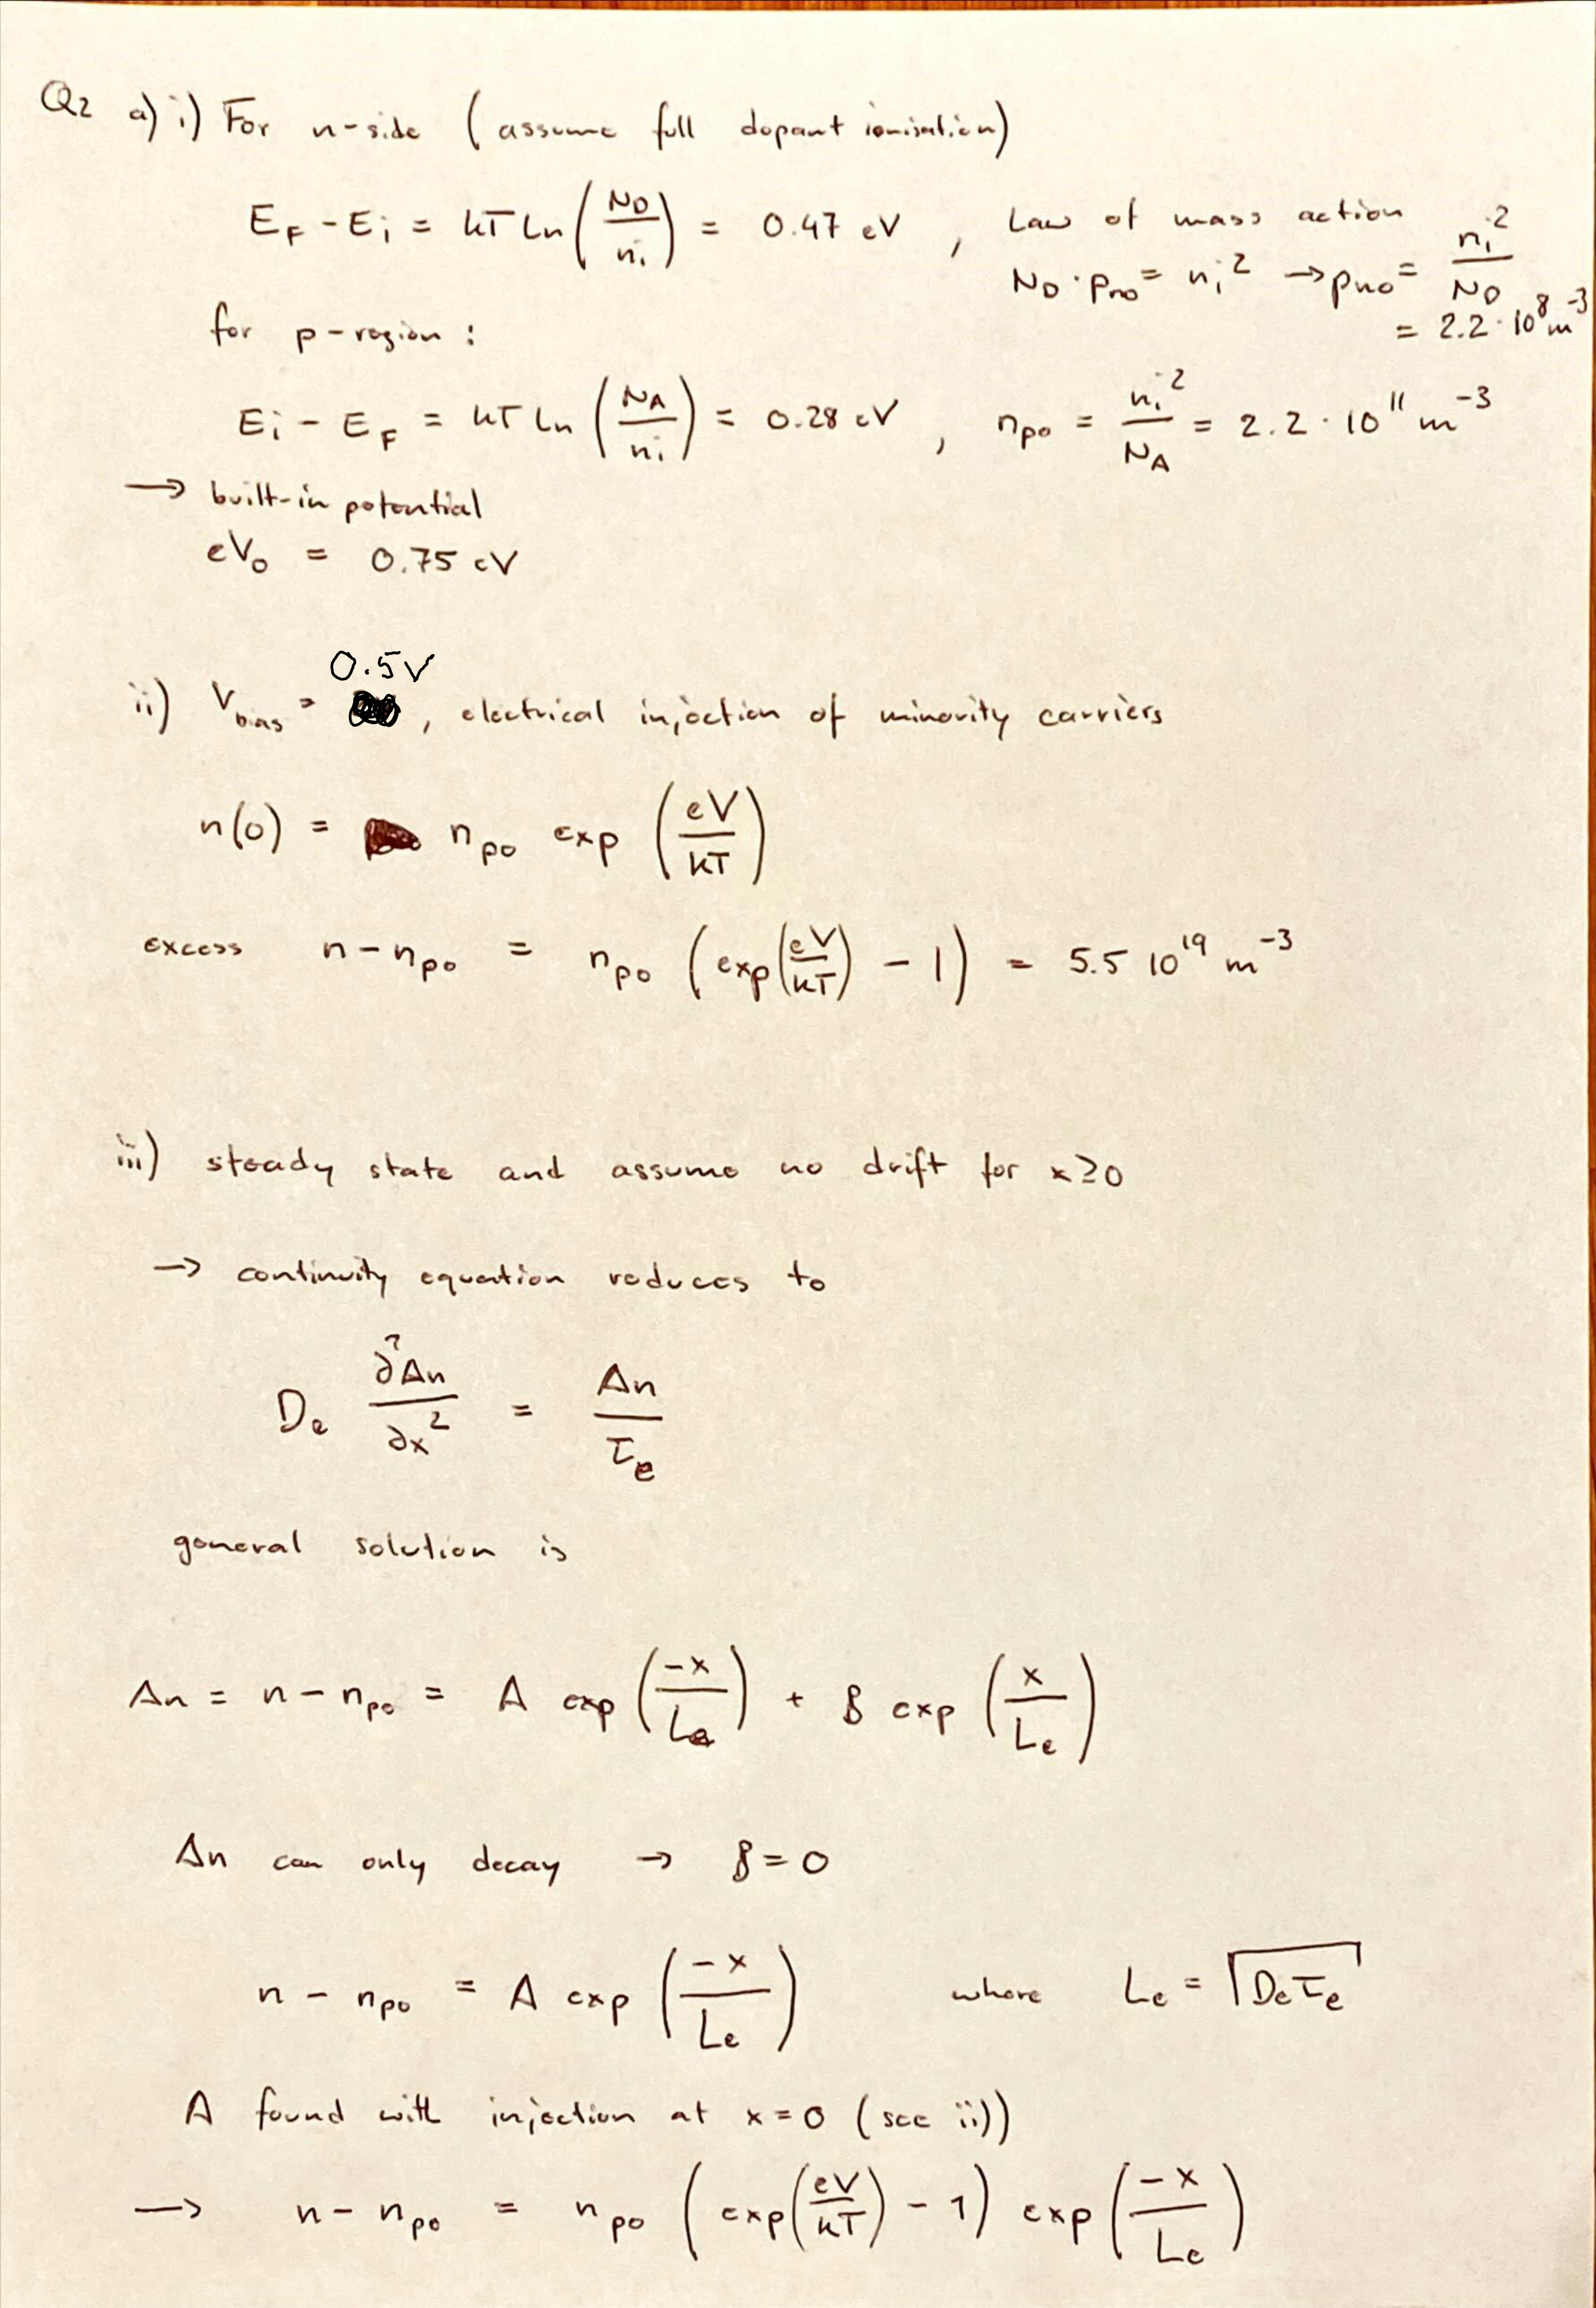 Q2 a) i) For n-side (assume full dopant ionisation)
E_F - E_i = kT ln(N_D/n_i) = 0.47 eV , Law of mass action
N_D · p_no = n_i² → p_no = n_i²/N_D
= 2.2 · 10⁸ m⁻³
for p-region :
E_i - E_F = kT ln(N_A/n_i) = 0.28 eV , n_po = n_i²/N_A = 2.2 · 10¹¹ m⁻³
→ built-in potential
eV_0 = 0.75 eV
0.5V
ii) V_bias = , electrical injection of minority carriers
n(0) = n_po exp(eV/kT)
excess n - n_po = n_po (exp(eV/kT) - 1) = 5.5 10¹⁹ m⁻³
iii) steady state and assume no drift for x ≥ 0
→ continuity equation reduces to
D_e ∂²Δn/∂x² = Δn/τ_e
general solution is
Δn = n - n_po = A exp(-x/L_e) + B exp(x/L_e)
Δn can only decay → B = 0
n - n_po = A exp(-x/L_e) where L_e = √(D_e τ_e)
A found with injection at x = 0 (see ii))
→ n - n_po = n_po (exp(eV/kT) - 1) exp(-x/L_e)